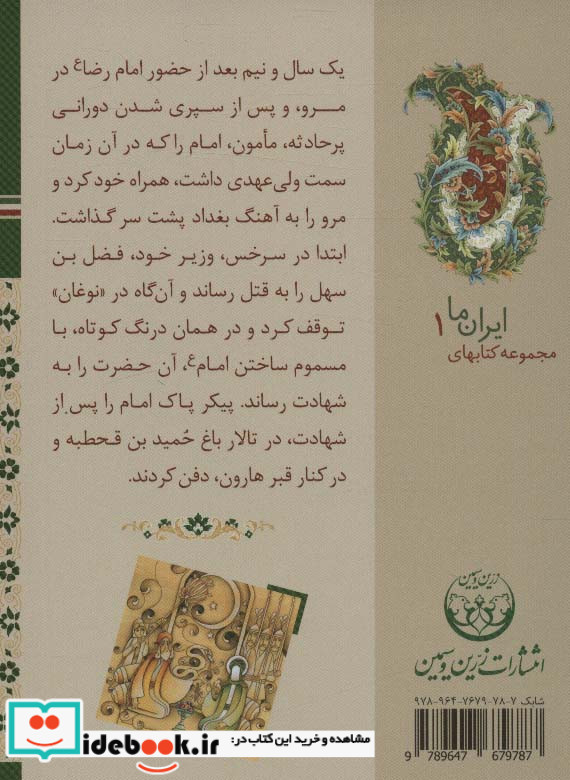 یک سال و نیم بعد از حضور امام رضا(ع) در
مرو، و پس از سپری شدن دورانی
پرحادثه، مأمون، امام را که در آن زمان
سمت ولی‌عهدی داشت، همراه خود کرد و
مرو را به آهنگ بغداد پشت سر گذاشت.
ابتدا در سرخس، وزیر خود، فضل بن
سهل را به قتل رساند و آن‌گاه در «نوغان»
توقف کرد و در همان درنگ کوتاه، با
مسموم ساختن امام(ع)، آن حضرت را به
شهادت رساند. پیکر پاک امام را پس از
شهادت، در تالار باغ حُمید بن قحطبه و
در کنار قبر هارون، دفن کردند.
ایران ما ۱
مجموعه کتابهای
زرین و سیمین
انتشارات زرّین و سیمین
شابک ۷-۷۸-۷۶۷۹-۹۶۴-۹۷۸
9 789647 679787
مشاهده و خرید این کتاب در:
idebook.ir